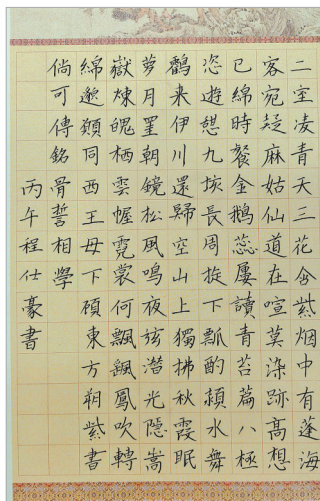 二室凌青天三花含紫烟中有蓬海
客宛疑麻姑仙道在喧莫染跡高想
已綿時餐金鵝蕊屢讀青苔篇八極
恣遊憩九垓長周旋下瓢酌潁水舞
鸖来伊川還歸空山上獨拂秋霞眠
萝月罣朝鏡松風鳴夜弦潛光隱嵩
嶽煉魄栖雲幄霓裳何飄颻鳳吹轉
綿邈願同西王母下顧東方朔紫書
倘可傳銘骨誓相學
丙午程仕豪書